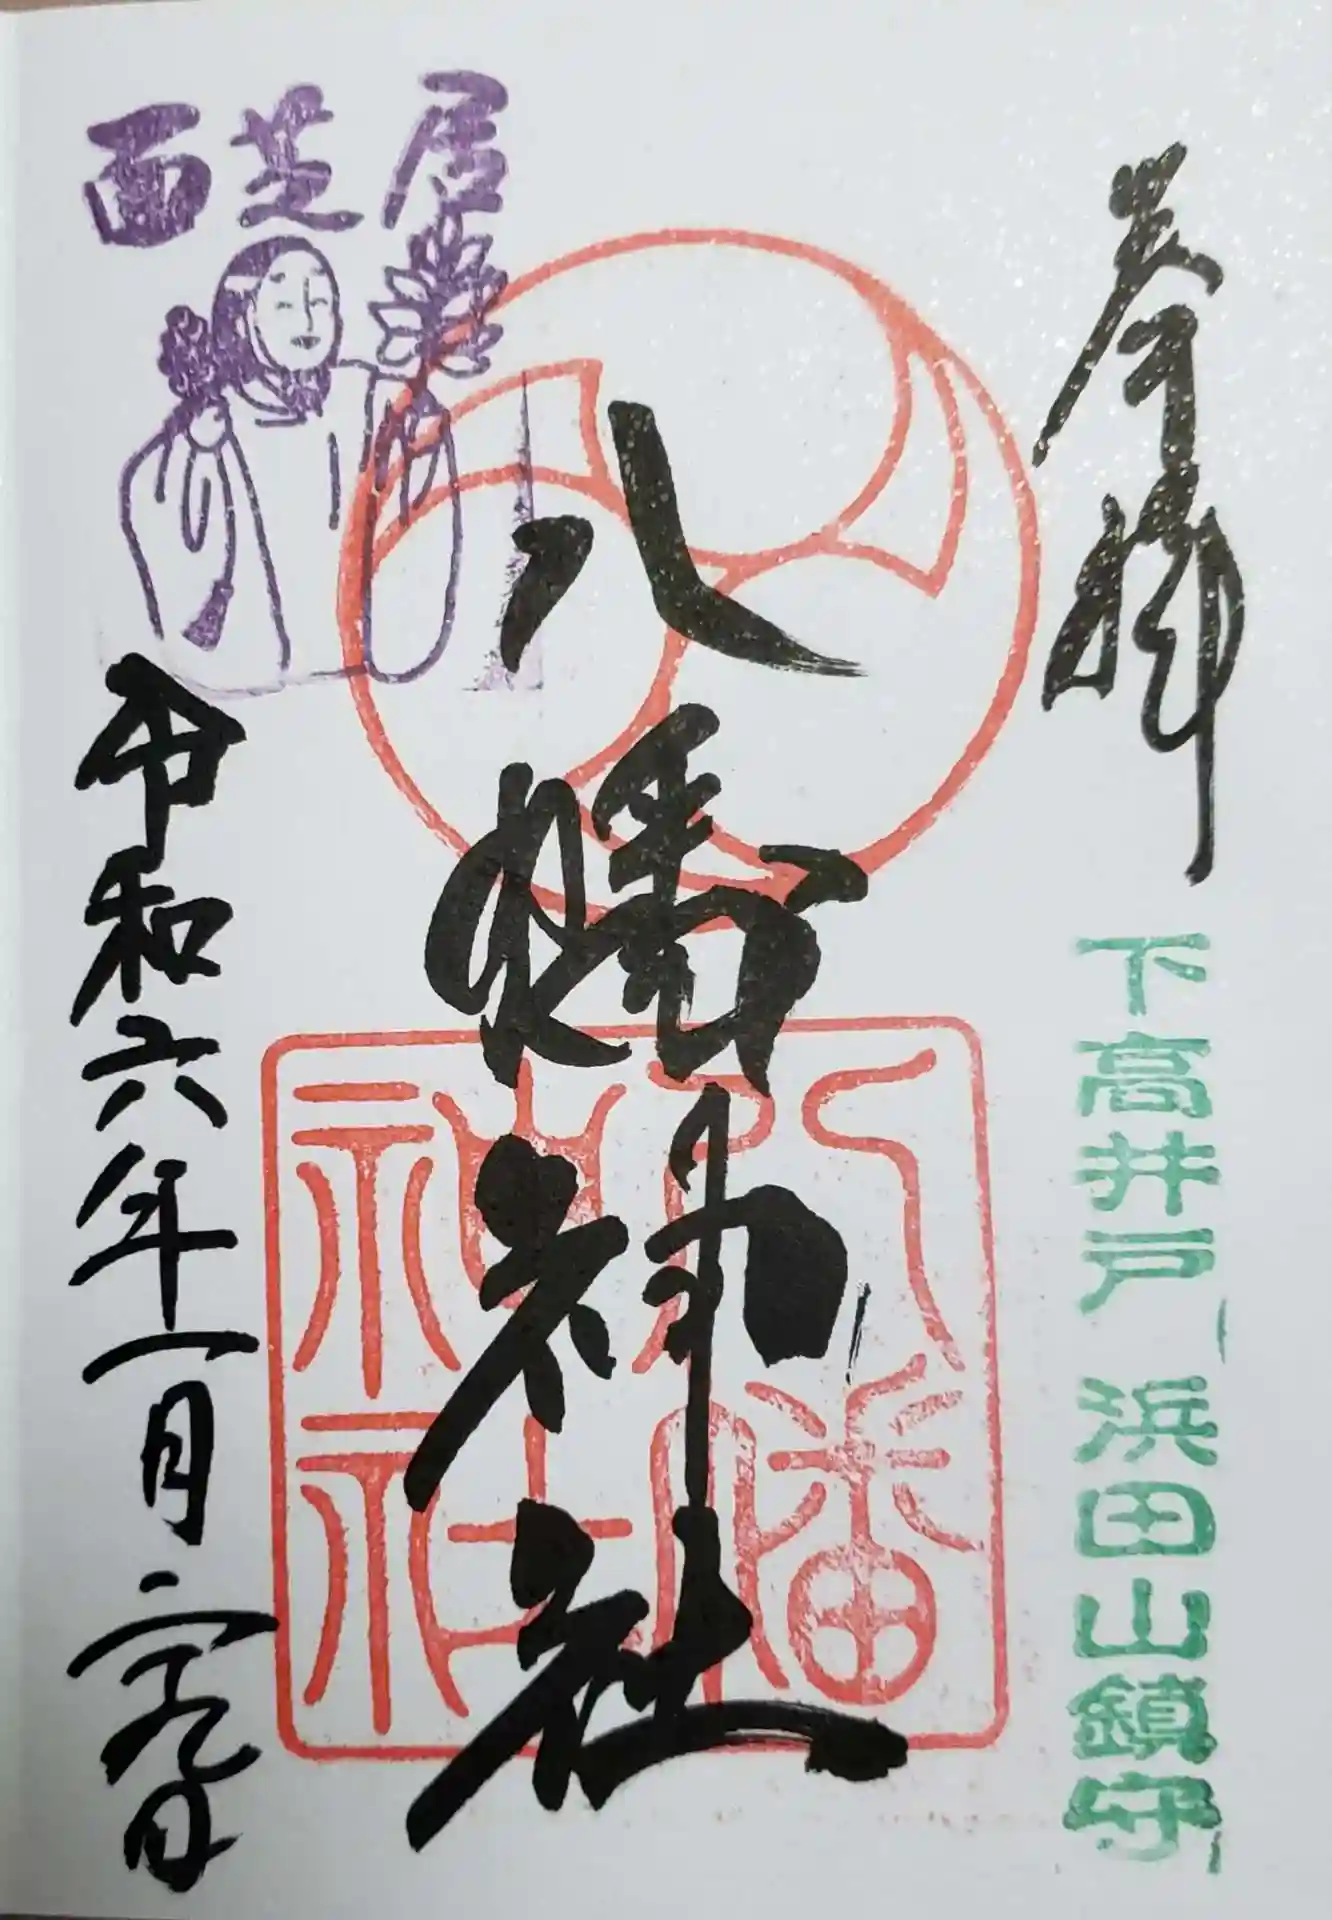 奉拝
下高井戸 浜田山鎮守
八幡神社
八幡
神社
面芝居
令和六年一月二十九日